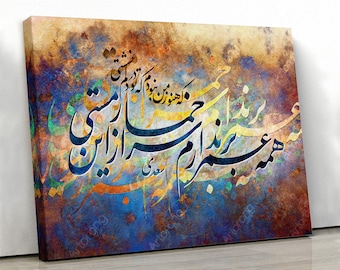 همه عمر برندارم سر از این خمار مستی
که هنوز من نبودم که تو در دلم نشستی
سعدی